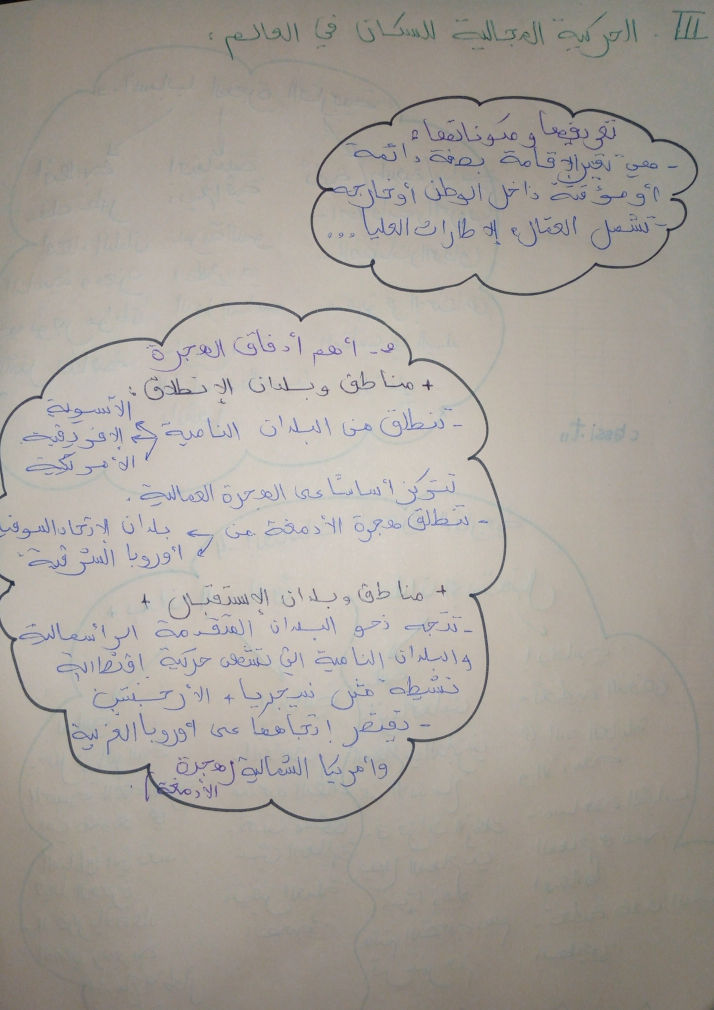 III. الحركية المجالية للسكان في العالم:
تعريفها ومكوناتها:
- هي تغيير الإقامة بصفة دائمة
أو مؤقتة داخل الوطن أو خارجه
- تشمل العمال، الإطارات العليا...
- أهم أدفاق الهجرة
+ مناطق وبلدان الإنطلاق:
- تنطلق من البلدان النامية
الآسيوية
الإفريقية
الأمريكية
تتركز أساسا على الهجرة العمالية.
- تنطلق هجرة الأدمغة من
بلدان الاتحاد السوفي
أوروبا الشرقية
+ مناطق وبلدان الإستقبال +
- تتجه نحو البلدان المتقدمة الرأسمالية
والبلدان النامية التي تشهد حركية اقتصادية
نشيطة مثل نيجريا + الأرجنتين
- يقتصر إتجاهها على أوروبا الغربية
وأمريكا الشمالية (هجرة
الأدمغة).